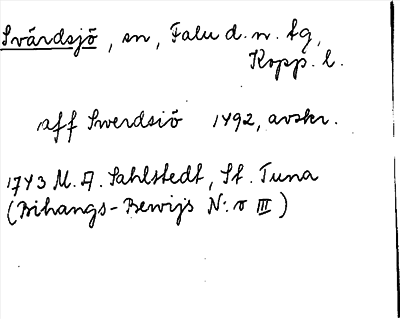 Svärdsjö, sn, Falu d.n. tg,
Kopp. l.
aff Swerdsiö 1492, avskr.
1743 M. A. Sahlstedt, St. Tuna
(Bihangs-Bewijs N:o III)